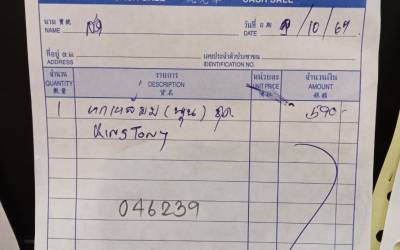 CASH SALE CASH SALE
นาม NAME สด วันที่ DATE 9/10/67
ที่อยู่ ADDRESS เลขประจำตัวประชาชน IDENTIFICATION NO.
จำนวน QUANTITY 數量 รายการ DESCRIPTION 貨名 หน่วยละ UNIT PRICE จำนวนเงิน AMOUNT
1 หกเหลี่ยม (หุน) ชุด 590-
KINGTONY
046239